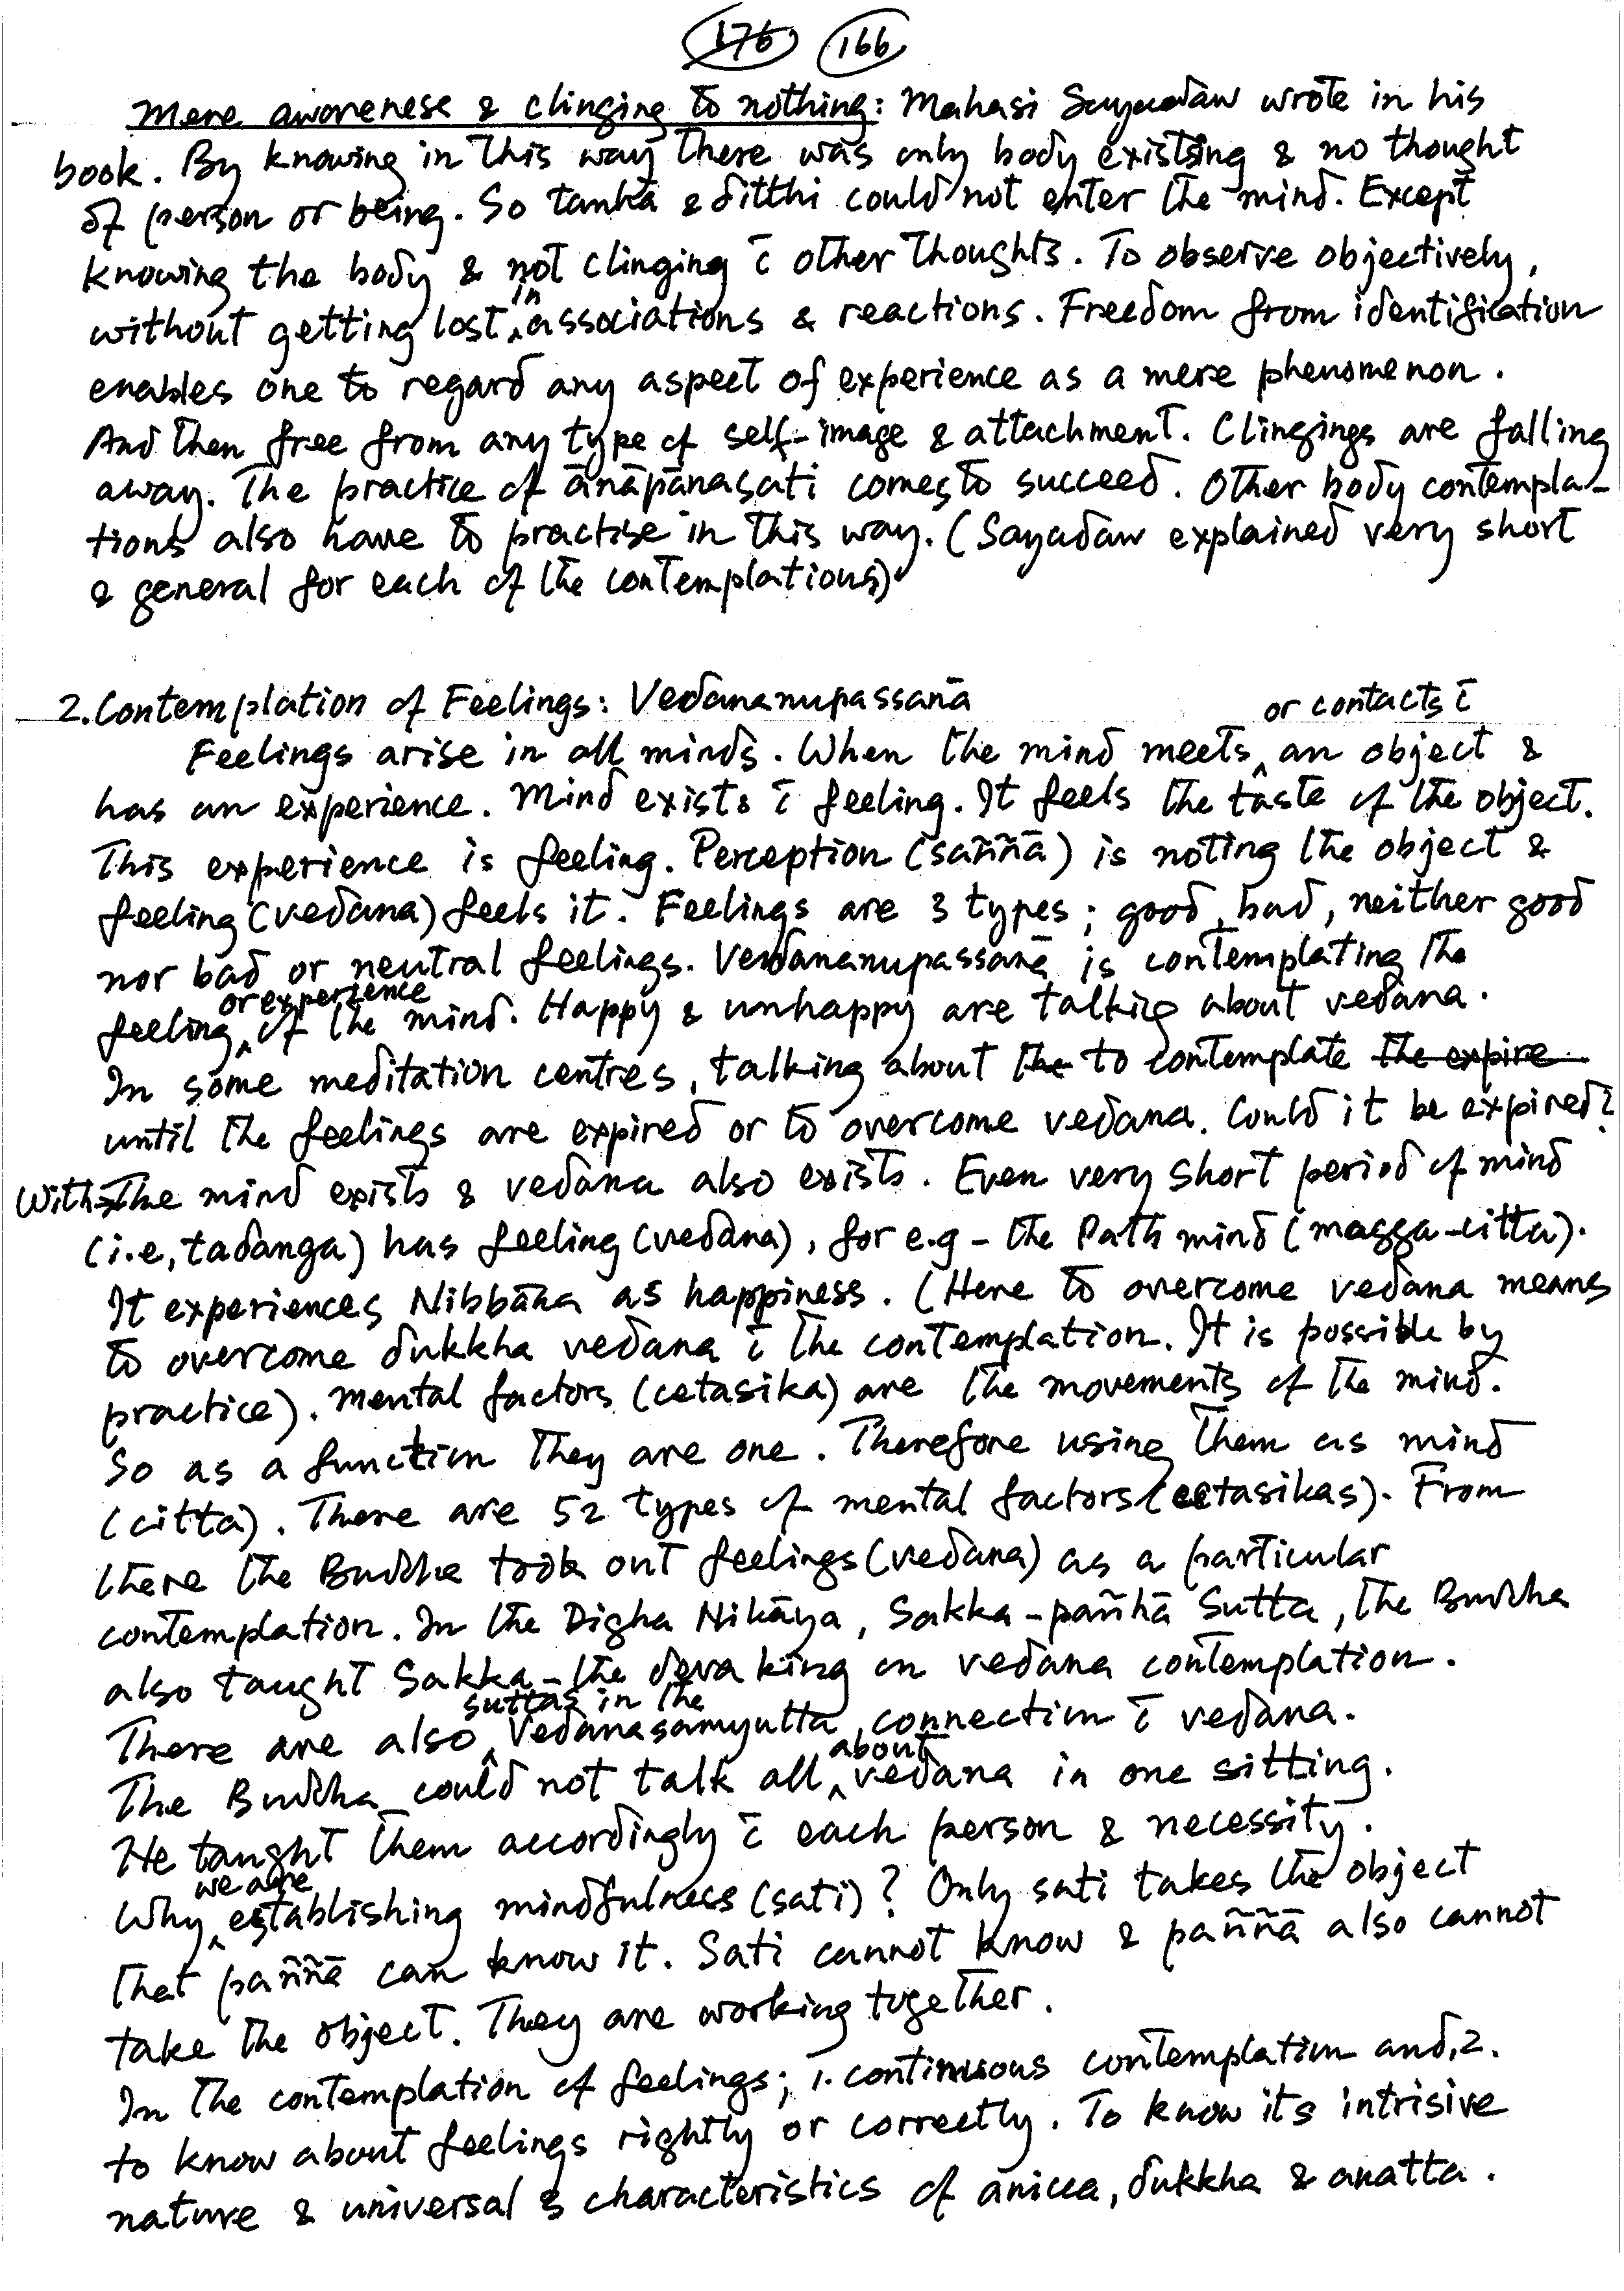 176 166
Mere awareness & clinging to nothing: Mahasi Sayadaw wrote in his
book. By knowing in this way there was only body existsing & no thought
of person or being. So tanhā & ditthi could not enter the mind. Except
knowing the body & not clinging c̄ other thoughts. To observe objectively,
without getting lost in associations & reactions. Freedom from identification
enables one to regard any aspect of experience as a mere phenomenon.
And then free from any type of self-image & attachment. Clingings are falling
away. The practice of ānāpānasati comes to succeed. Other body contempla-
tions also have to practise in this way. (Sayadaw explained very short
& general for each of the contemplations)
2. Contemplation of Feelings: Vedananupassanā
Feelings arise in all minds. When the mind meets or contacts c̄ an object &
has an experience. Mind exists c̄ feeling. It feels the taste of the object.
This experience is feeling. Perception (saññā) is noting the object &
feeling (vedana) feels it. Feelings are 3 types; good, bad, neither good
nor bad or neutral feelings. Vedananupassanā is contemplating the
feeling or experience of the mind. Happy & unhappy are talking about vedana.
In some meditation centres, talking about the to contemplate the expire
until the feelings are expired or to overcome vedana. Could it be expired?
With the mind exists & vedana also exists. Even very short period of mind
(i.e, tadanga) has feeling (vedana), for e.g – the Path mind (magga-citta).
It experiences Nibbāna as happiness. (Here to overcome vedana means
to overcome dukkha vedana c̄ the contemplation. It is possible by
practice). Mental factors (cetasika) are the movements of the mind.
So as a function they are one. Therefore using them as mind
(citta). There are 52 types of mental factors (cetasikas). From
there the Buddha took out feelings (vedana) as a particular
contemplation. In the Digha Nikāya, Sakka-pañhā Sutta, the Buddha
also taught Sakka – the deva king on vedana contemplation.
There are also suttas in the Vedanasamyutta, connection c̄ vedana.
The Buddha could not talk all about vedana in one sitting.
He taught them accordingly c̄ each person & necessity.
Why we are establishing mindfulness (sati)? Only sati takes the object
that paññā can know it. Sati cannot know & paññā also cannot
take the object. They are working together.
In the contemplation of feelings; 1. continuous contemplation and, 2.
to know about feelings rightly or correctly. To know its intrisive
nature & universal characteristics of anicca, dukkha & anatta.